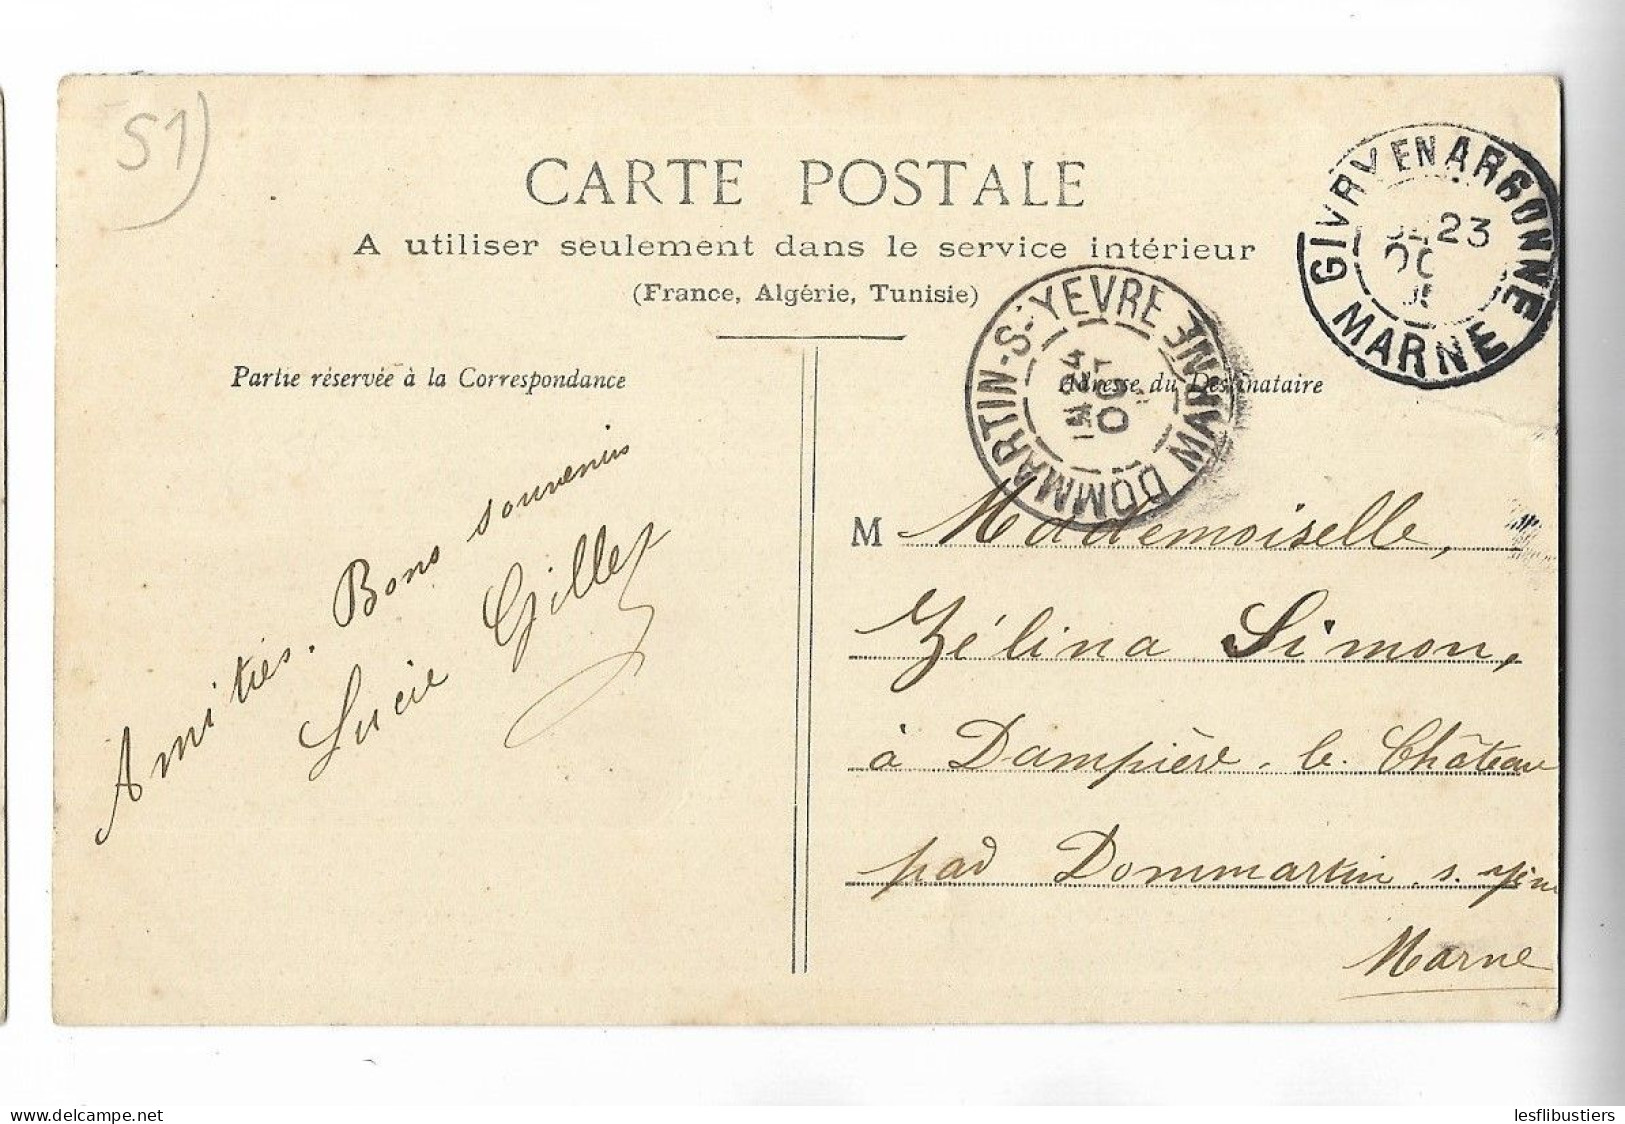 51)
CARTE POSTALE
A utiliser seulement dans le service intérieur
(France, Algérie, Tunisie)
GIVRY EN ARGONNE
23
OC
MARNE
DOMMARTIN-S-YEVRE
24
OCT
MARNE
Partie réservée à la Correspondance
Adresse du Destinataire
Amitiés. Bons souvenirs
Lucie Gillet
M Mademoiselle,
Zélina Simon,
à Dampière-le-Château
par Dommartin s. Yèvre
Marne
www.delcampe.net
lesflibustiers